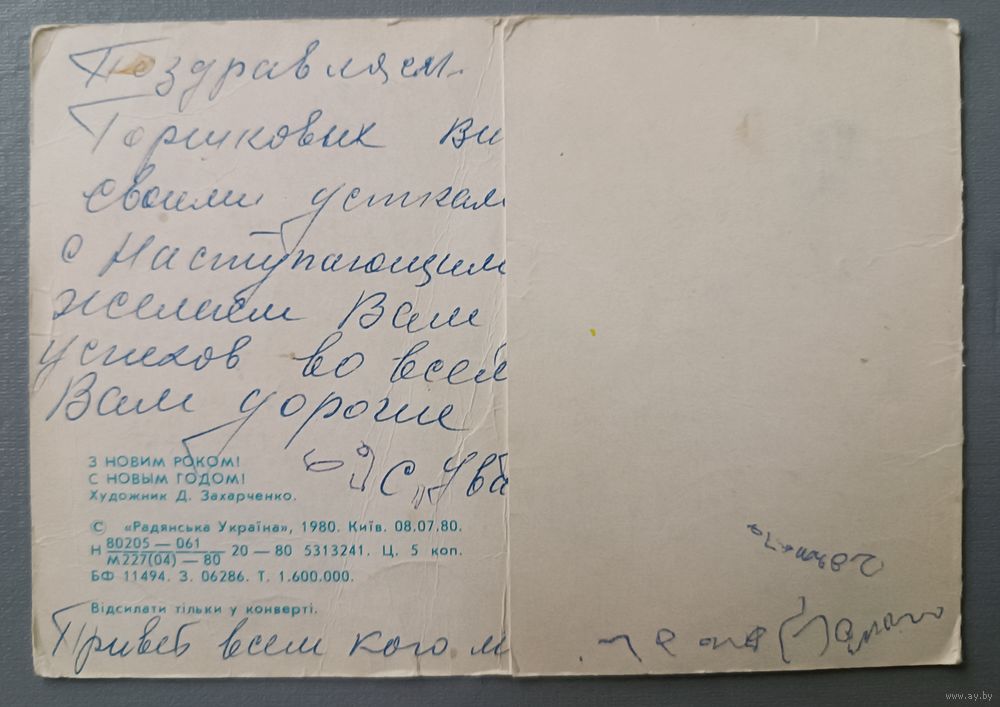 Поздравляем
Горшковых Ви
своими
с Наступающим
желаем Вам
успехов во всем
Вам дорогие
З НОВИМ РОКОМ!
С НОВЫМ ГОДОМ!
Художник Д. Захарченко.
© «Радянська Україна», 1980. Київ. 08.07.80.
Н 80205 — 061 / М227(04) — 80 20 — 80 5313241. Ц. 5 коп.
БФ 11494. З. 06286. Т. 1.600.000.
Відсилати тільки у конверті.
Привет всем кого м
www.ay.by